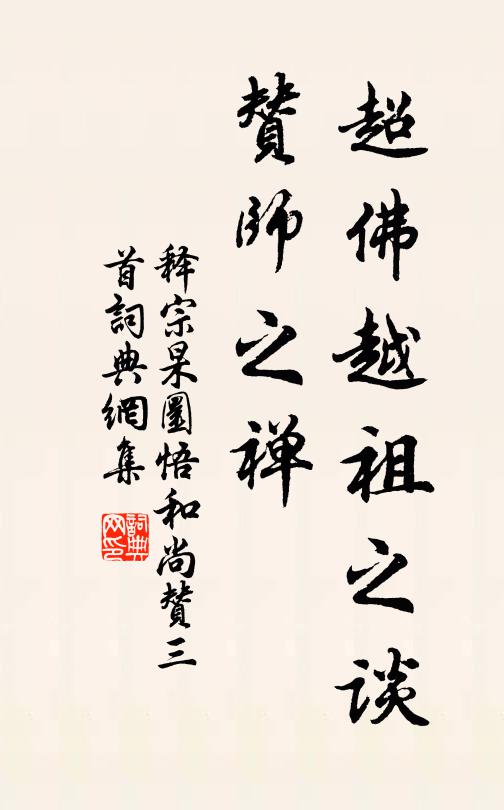 超佛越祖之谈
赞師之禅
释宗杲圜悟和尚赞三
首詞典網集
詞典网印